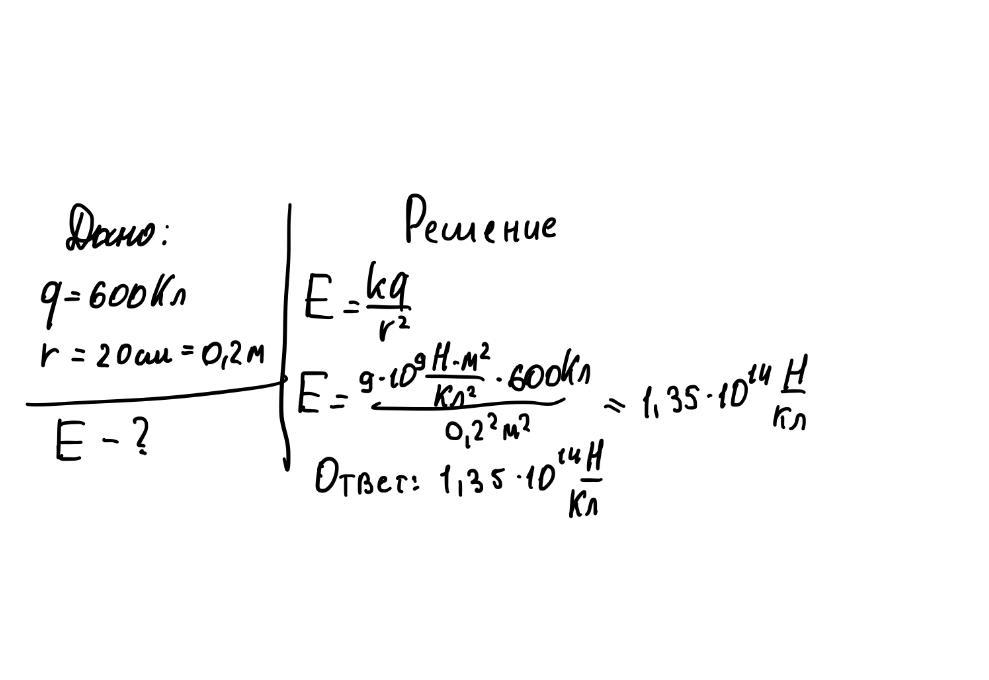 Дано:
q = 600 Кл
r = 20 см = 0,2 м
E - ?
Решение
E = kq / r²
E = 9·10⁹ Н·м²/Кл² · 600 Кл / 0,2² м² ≈ 1,35·10¹⁴ Н/Кл
Ответ: 1,35·10¹⁴ Н/Кл